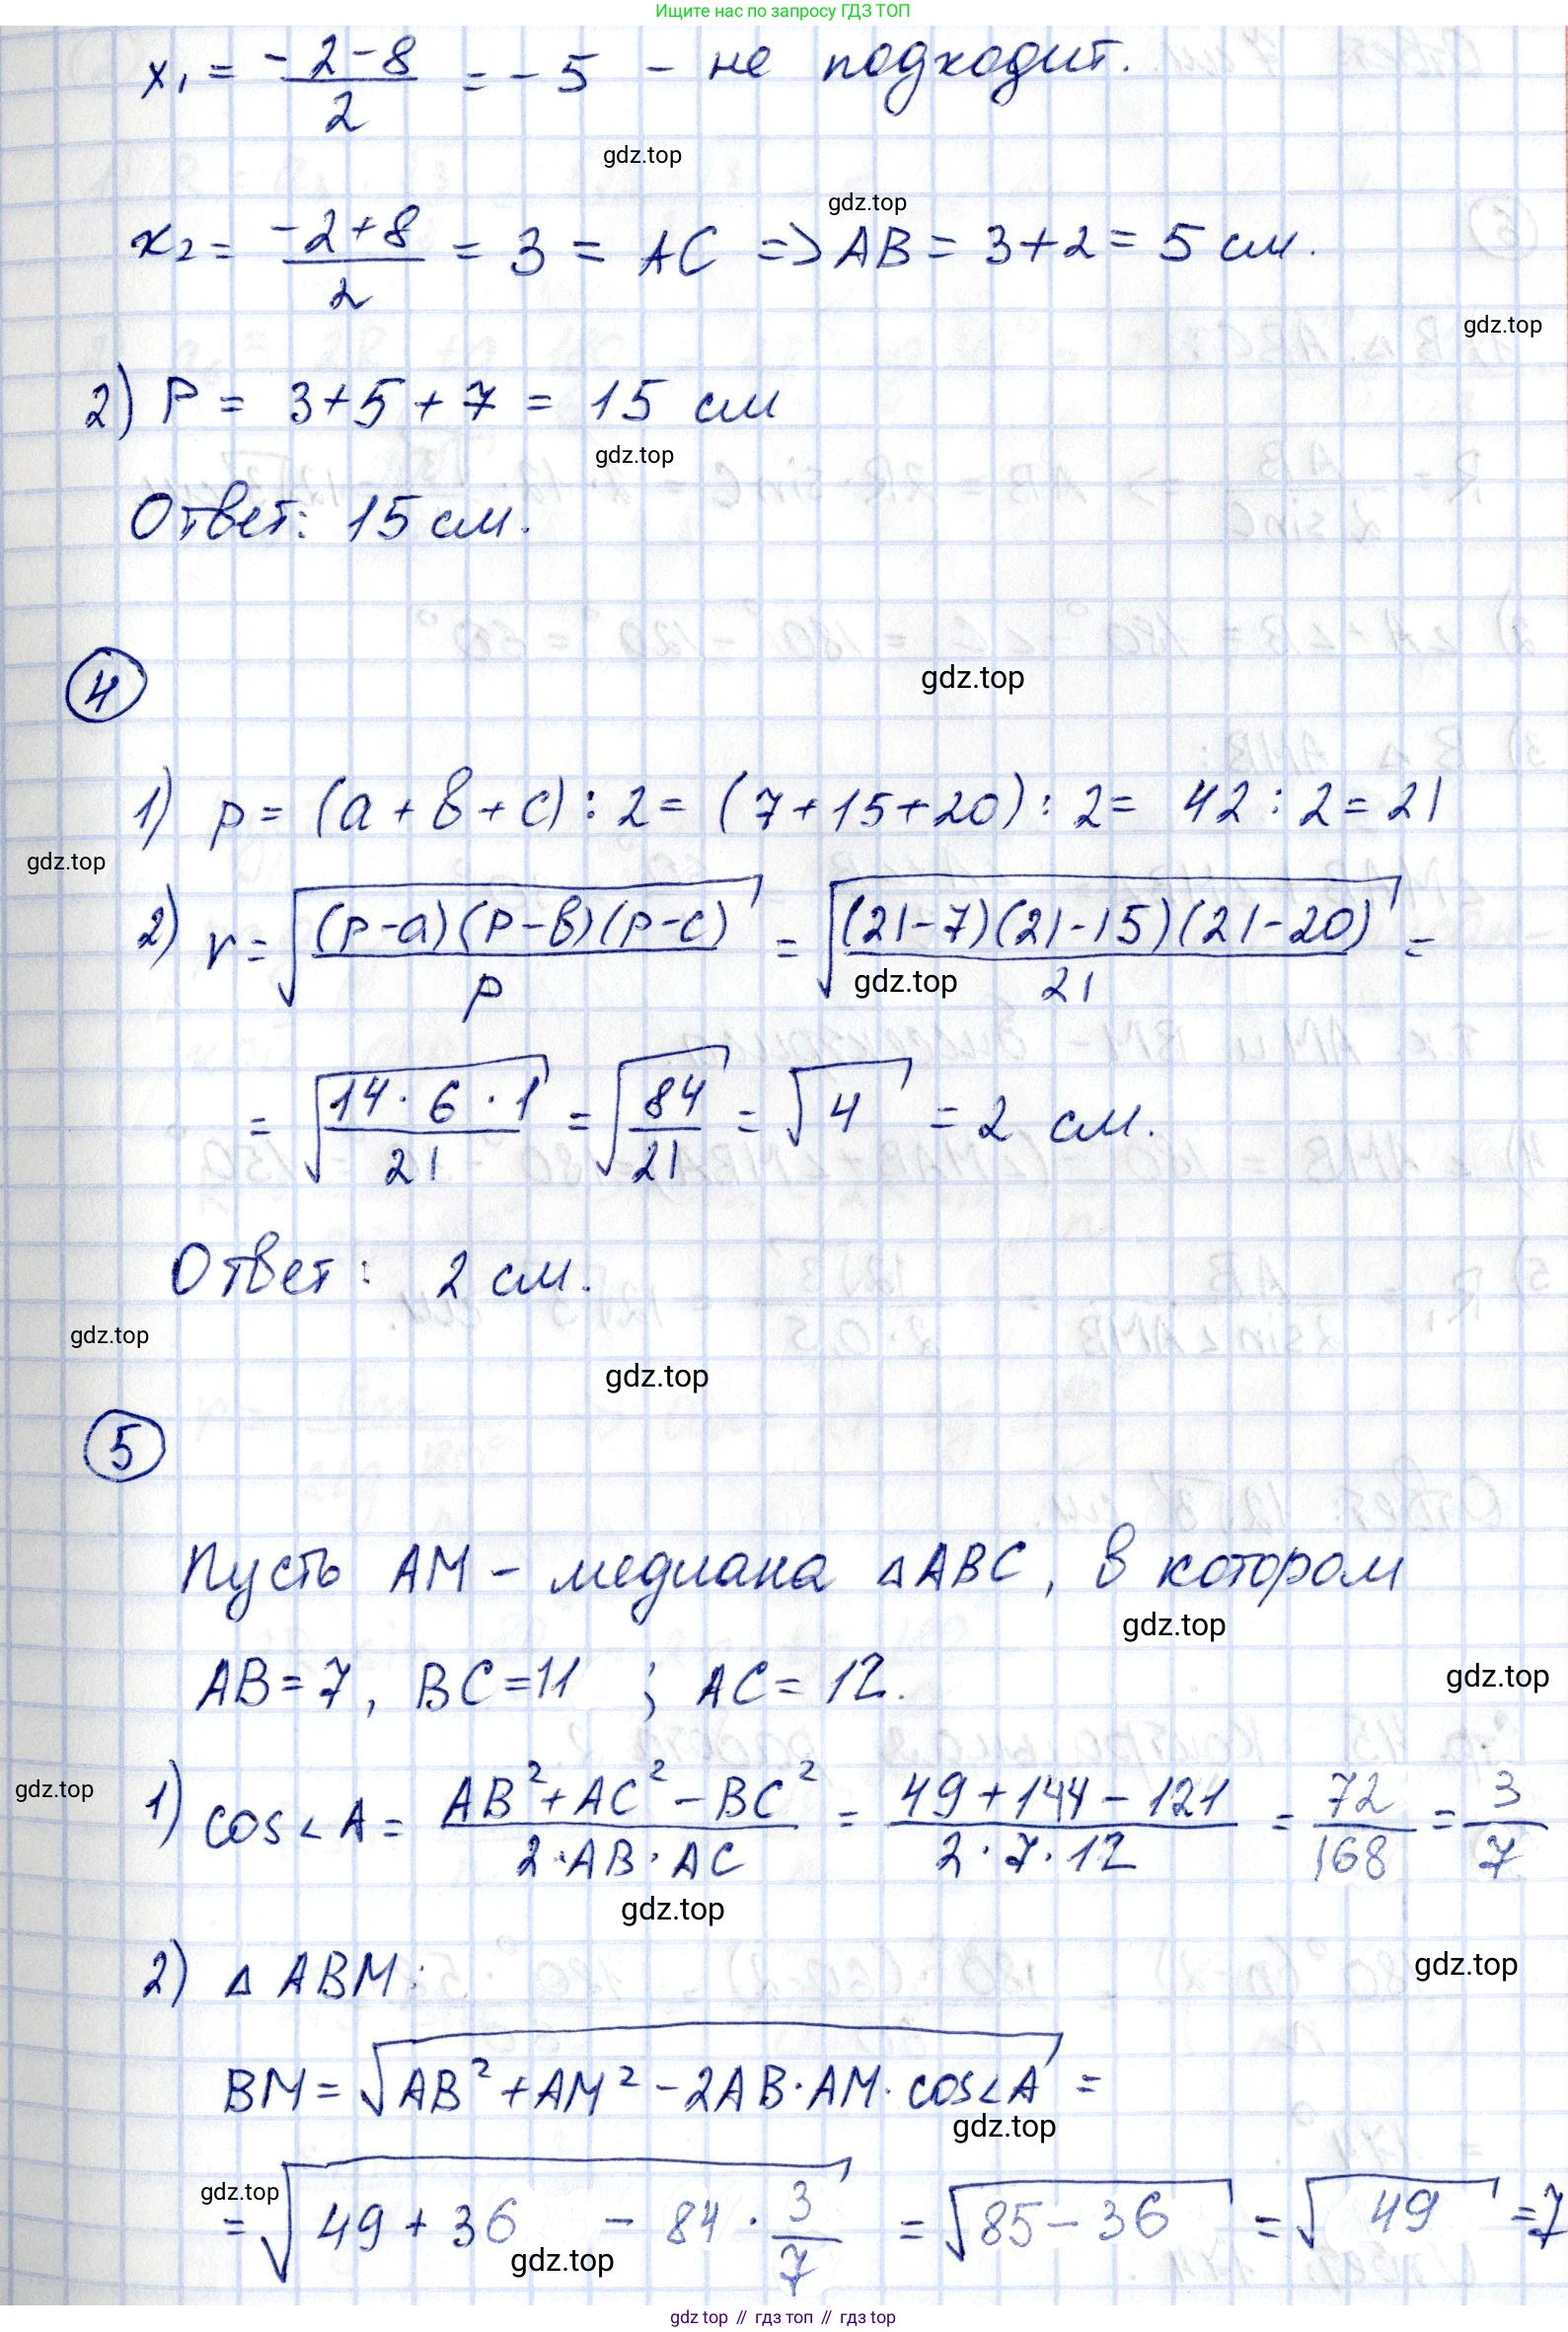 Ищите нас по запросу ГДЗ ТОП
x₁ = (-2-8)/2 = -5 - не подходит.
gdz.top
gdz.top
x₂ = (-2+8)/2 = 3 = AC => AB = 3+2 = 5 см.
gdz.top
2) P = 3+5+7 = 15 см
gdz.top
Ответ: 15 см.
4
gdz.top
1) p = (a+b+c) : 2 = (7+15+20) : 2 = 42 : 2 = 21
gdz.top
2) r = √((p-a)(p-b)(p-c)/p) = √((21-7)(21-15)(21-20)/21) =
gdz.top
= √(14·6·1/21) = √(84/21) = √4 = 2 см.
Ответ: 2 см.
gdz.top
gdz.top
5
Пусть AM - медиана △ABC, в котором
gdz.top
AB=7, BC=11 ; AC=12.
gdz.top
gdz.top
1) cos∠A = (AB²+AC²-BC²)/(2·AB·AC) = (49+144-121)/(2·7·12) = 72/168 = 3/7
gdz.top
2) △ABM:
gdz.top
BM = √(AB²+AM²-2AB·AM·cos∠A) =
gdz.top
gdz.top
= √(49+36 - 84·3/7) = √(85-36) = √49 = 7
gdz.top
gdz top // гдз топ // гдз top